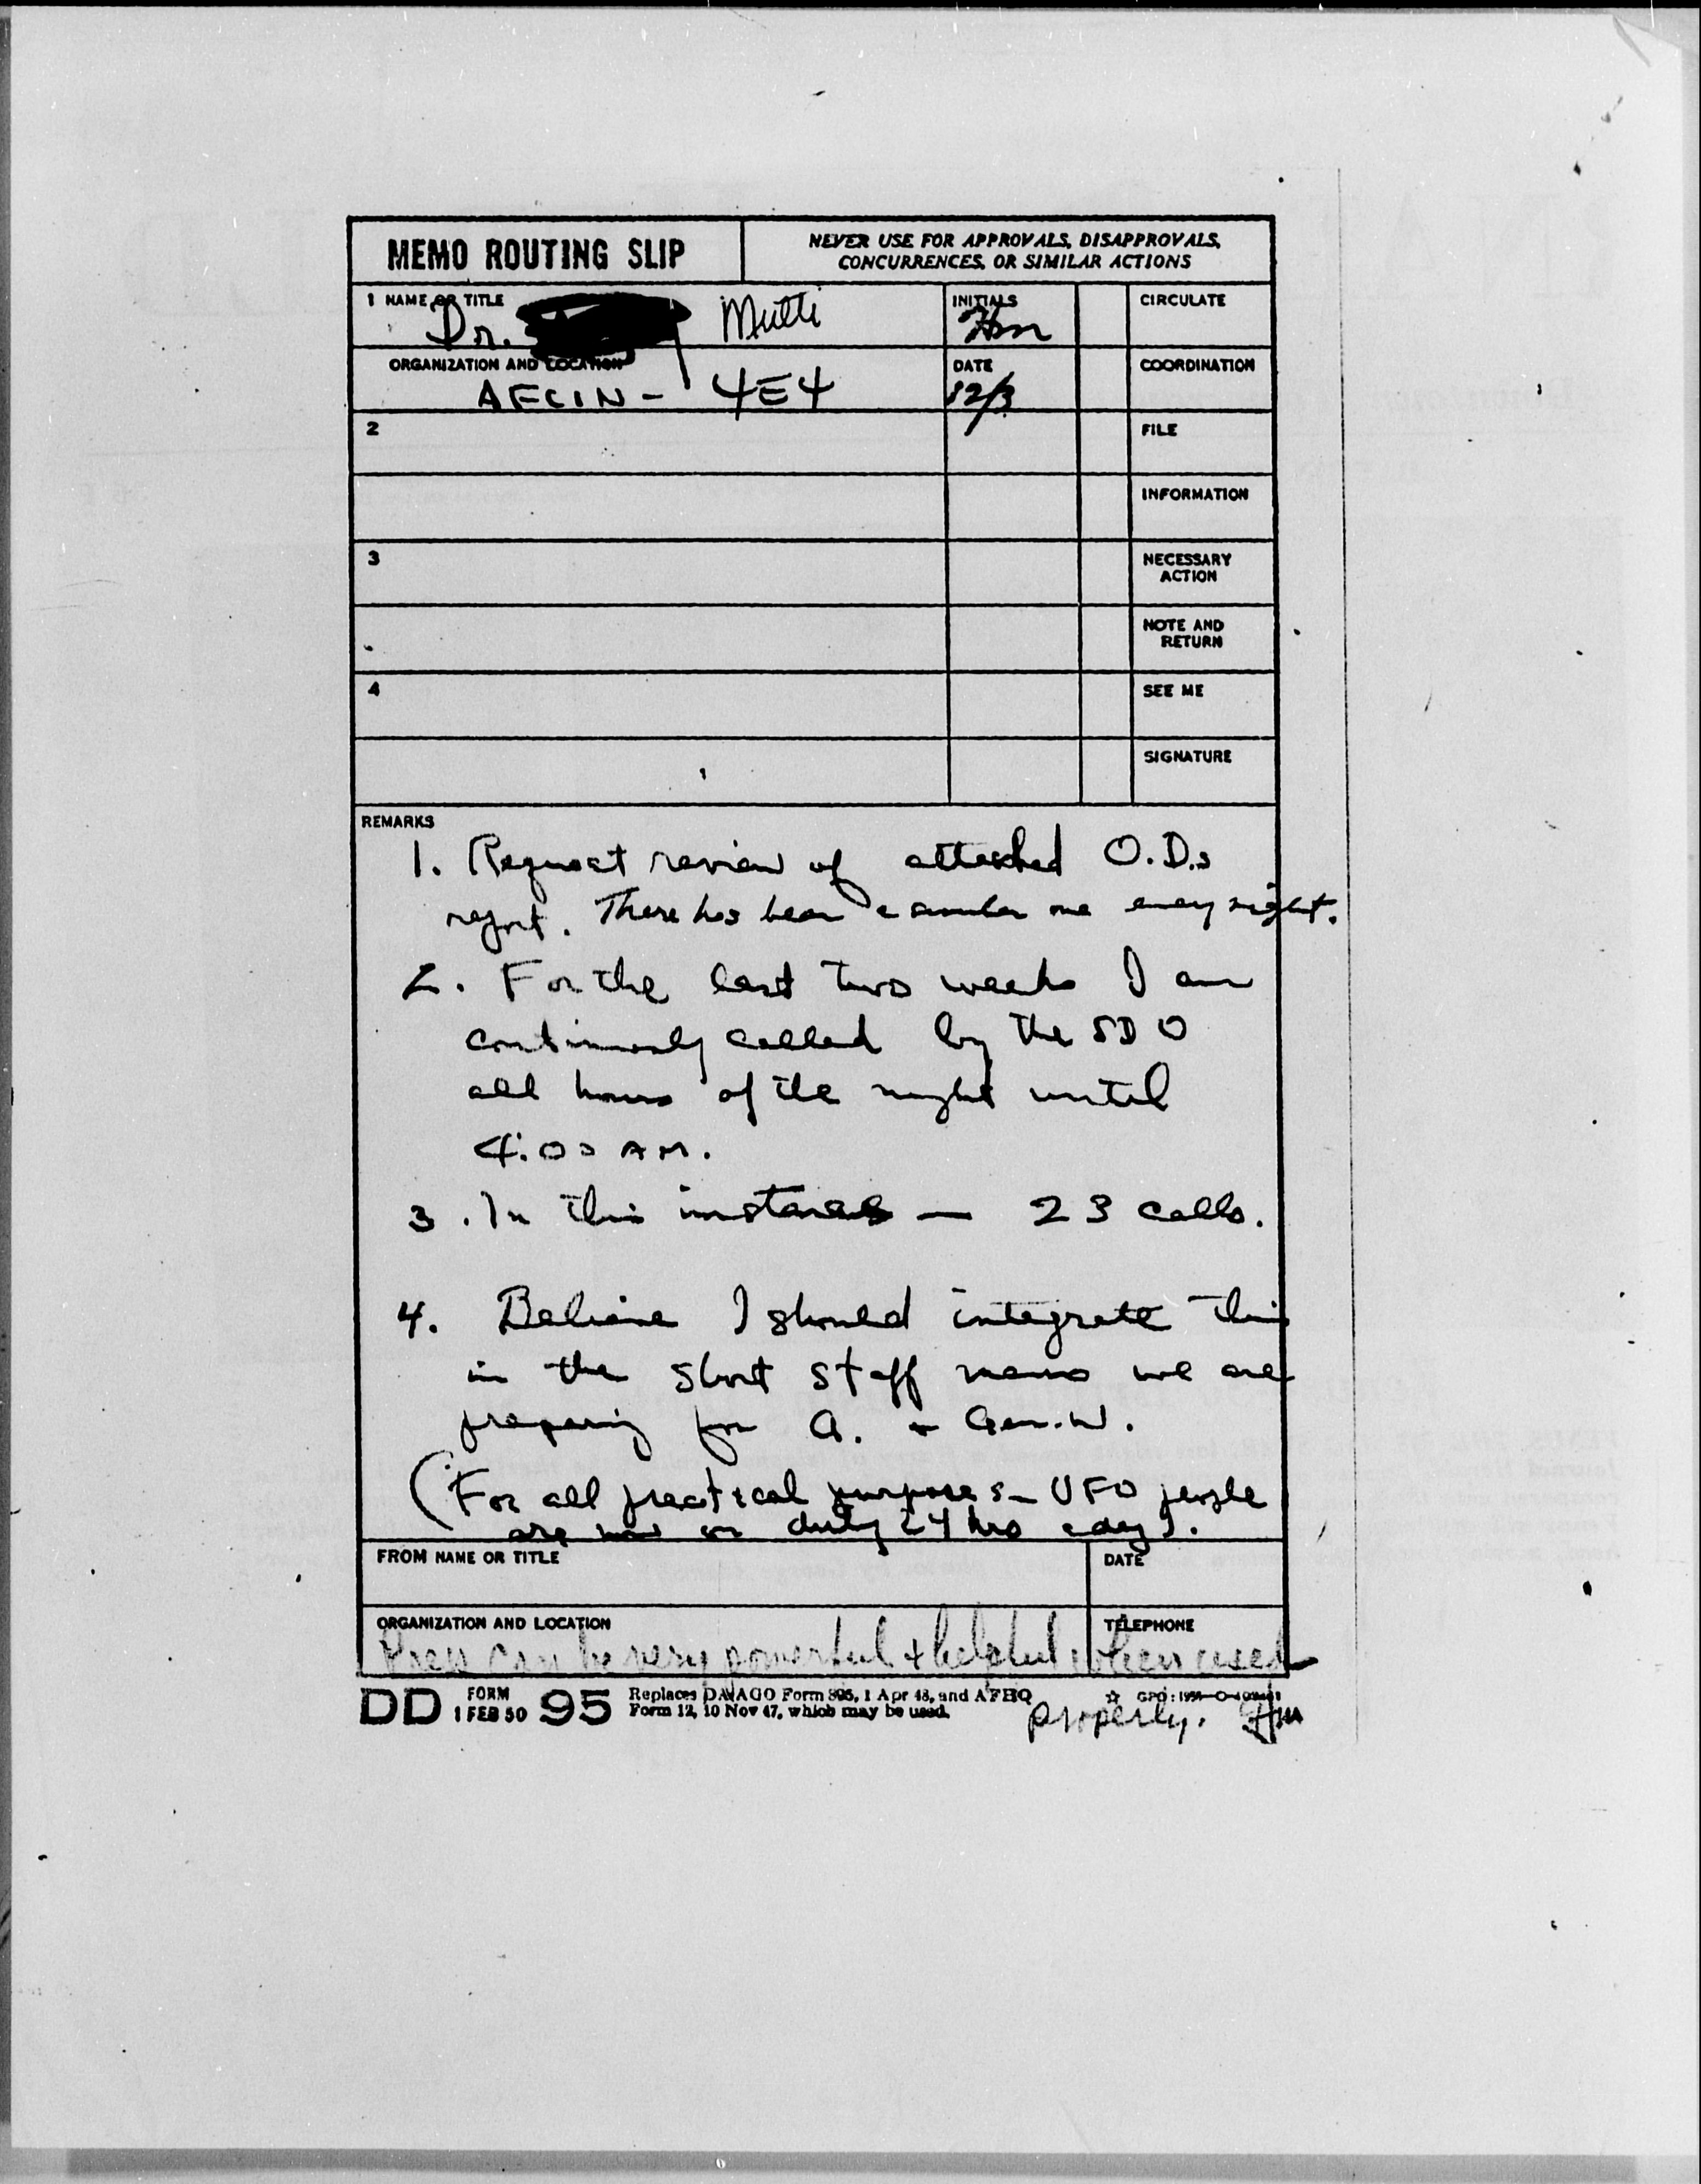 MEMO ROUTING SLIP
NEVER USE FOR APPROVALS, DISAPPROVALS,
CONCURRENCES, OR SIMILAR ACTIONS
1 NAME OR TITLE
Dr.
INITIALS
CIRCULATE
ORGANIZATION AND LOCATION
AFCIN - 4E4
DATE
12/3
COORDINATION
2
FILE
INFORMATION
3
NECESSARY
ACTION
NOTE AND
RETURN
4
SEE ME
SIGNATURE
REMARKS
1. Request review of attached O.D.s
report. There has been a similar one every night.
2. For the last two weeks I am
continuously called by the SDO
all hours of the night until
4:00 AM.
3. In this instance — 23 calls.
4. Believe I should integrate this
in the short staff memo we are
preparing for A. + Gen. W.
(For all practical purposes - UFO people
are now on duty 24 hrs a day).
FROM NAME OR TITLE
DATE
ORGANIZATION AND LOCATION
TELEPHONE
Press can be very powerful + helpful when used
properly.
DD FORM 1 FEB 50 95
Replaces DA AGO Form 895, 1 Apr 48, and AFHQ
Form 12, 10 Nov 47, which may be used.